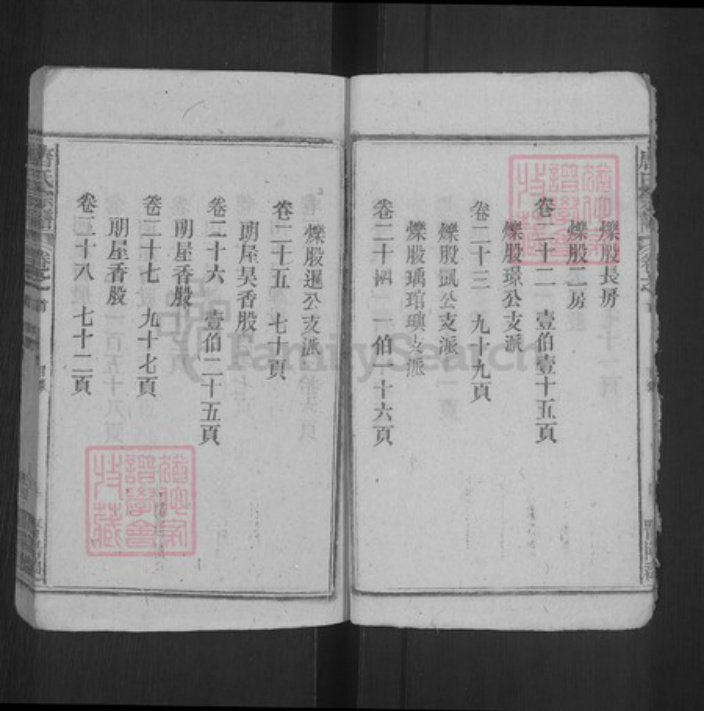 爍股長房
爍股二房
卷二十二 壹伯壹十五頁
爍股璟公支派
卷二十三 九十九頁
爍股凱公支派
爍股瑀琯璵支派
卷二十四 一伯一十六頁
爍股暹公支派
卷二十五 七十頁
明屋昊香股
卷二十六 壹伯二十五頁
明屋香股
卷二十七 九十七頁
明屋香股
卷二十八 七十二頁
FamilySearch